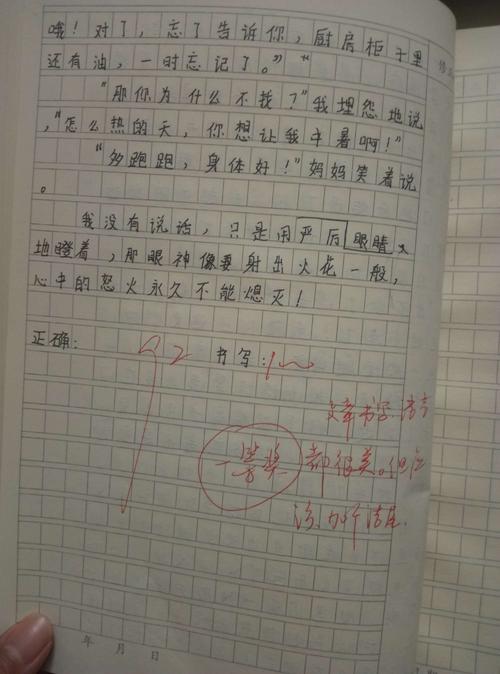 哦！对了，忘了告诉你，厨房柜子里
还有油，一时忘记了。”“
“那你为什么不找？”我埋怨地说
，“怎么热的天，你想让我中暑啊！”
“多跑跑，身体好！”妈妈笑着说
。
我没有说话，只是用严厉眼睛
地瞪着，那眼神像要射出火花一般，
心中的怒火永久不能熄灭！
正确：
92
书写：
文章书写、语言
一等奖
都很美。但应
该加个结尾.
年 月 日